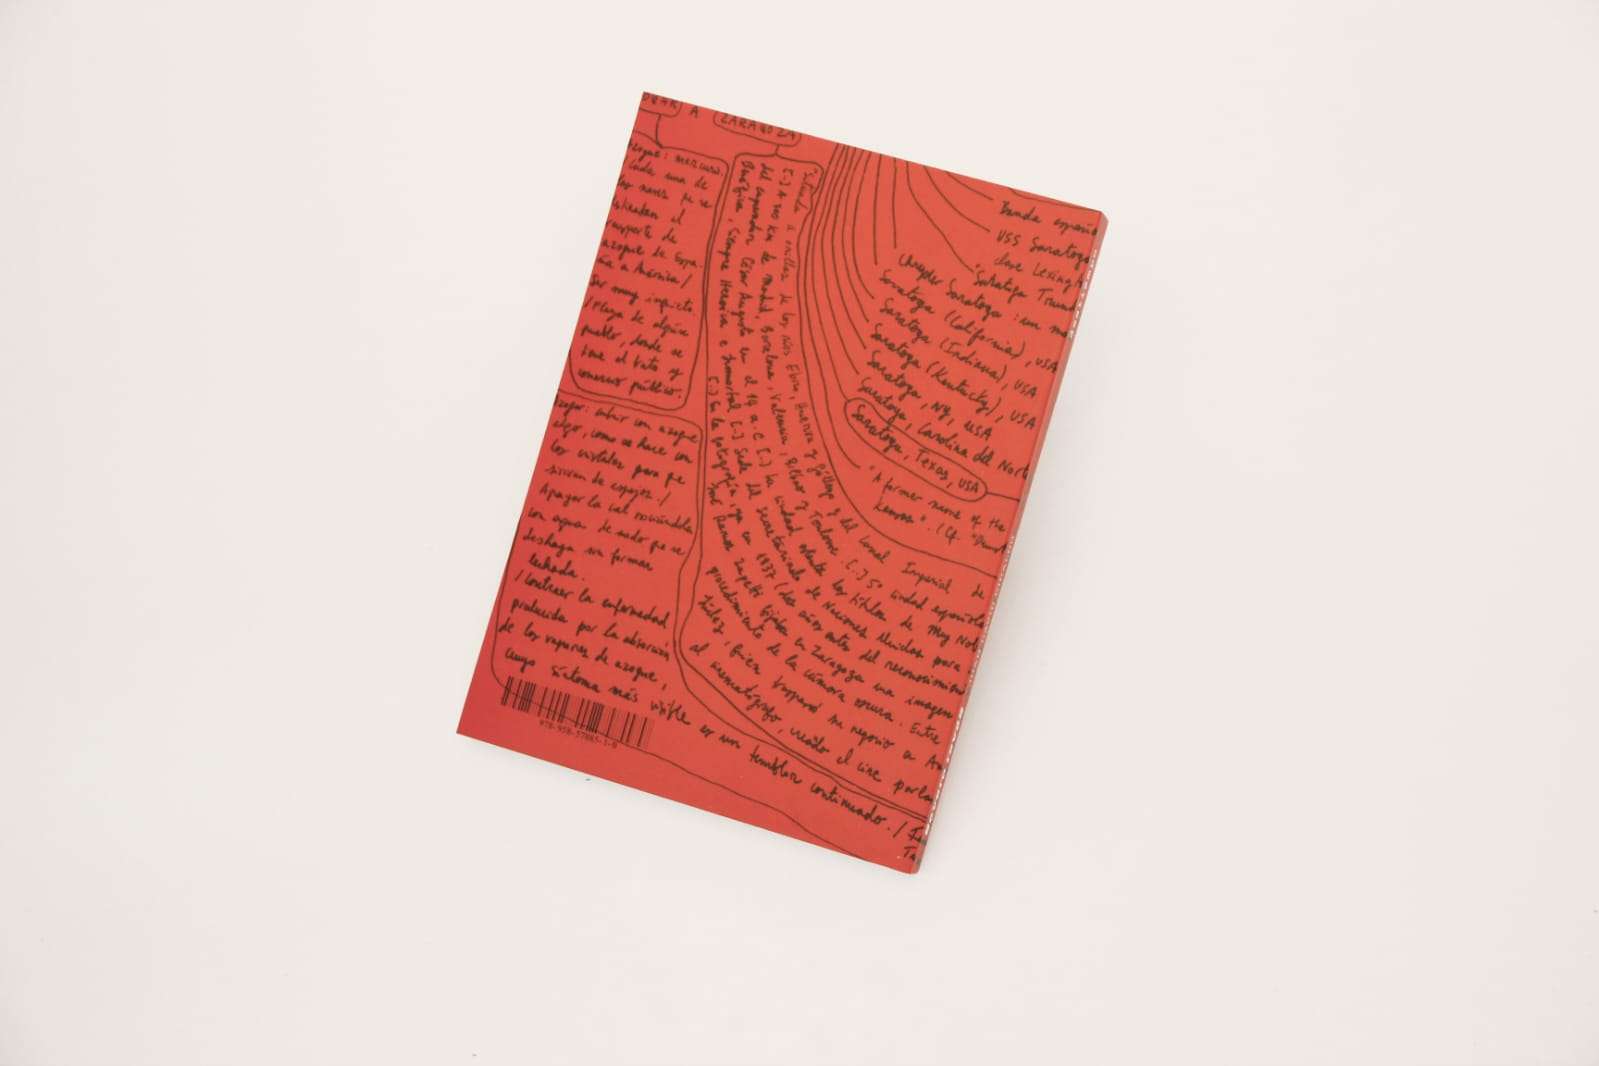 A ZARAGOZA
mercurio.
Cada una de
las naves que se
el
de
azogue de Espa-
ña a América /
Ser muy inquieto.
/ Plaza de algún
pueblo, donde se
tiene el trato y
comercio público.
cubrir con azogue
algo, como se hace con
los cristales para que
sirvan de espejos. /
Apagar la cal rociándola
con agua de modo que se
deshaga sin formar
lechada.
/ Contraer la enfermedad
producida por la absorción
de los vapores de azogue,
cuyo síntoma más visible es un temblor continuado. /
"Situada a orillas de los ríos Ebro, Huerva y Gállego y del Canal Imperial de
[...] A 300 km de Madrid, Barcelona, Valencia, Bilbao y Toulouse. [...] 5ª ciudad española
del emperador César Augusto en el 14 a.C [...] La ciudad ostenta los títulos de Muy Nob
Benéfica, Siempre Heroica e Inmortal [...] Sede del secretariado de Naciones Unidas para
[...] En la fotografía, ya en 1837 (dos años antes del reconocimien
José Ramos Zapetti fijaba en Zaragoza una imagen
procedimiento de la cámara oscura. Entre
quien traspasó su negocio a An
al cinematógrafo, creado el cine parla
Banda españo
USS Saratoga
clase Lexingt
"Saratoga Trunk
Chrysler Saratoga : un mo
Saratoga (California), USA
Saratoga (Indiana), USA
Saratoga (Kentucky), USA
Saratoga, NY, USA
Saratoga, Carolina del Nort
Saratoga, Texas, USA
"A former name of the
Kansas". (Cf.
978-958-57885-1-0